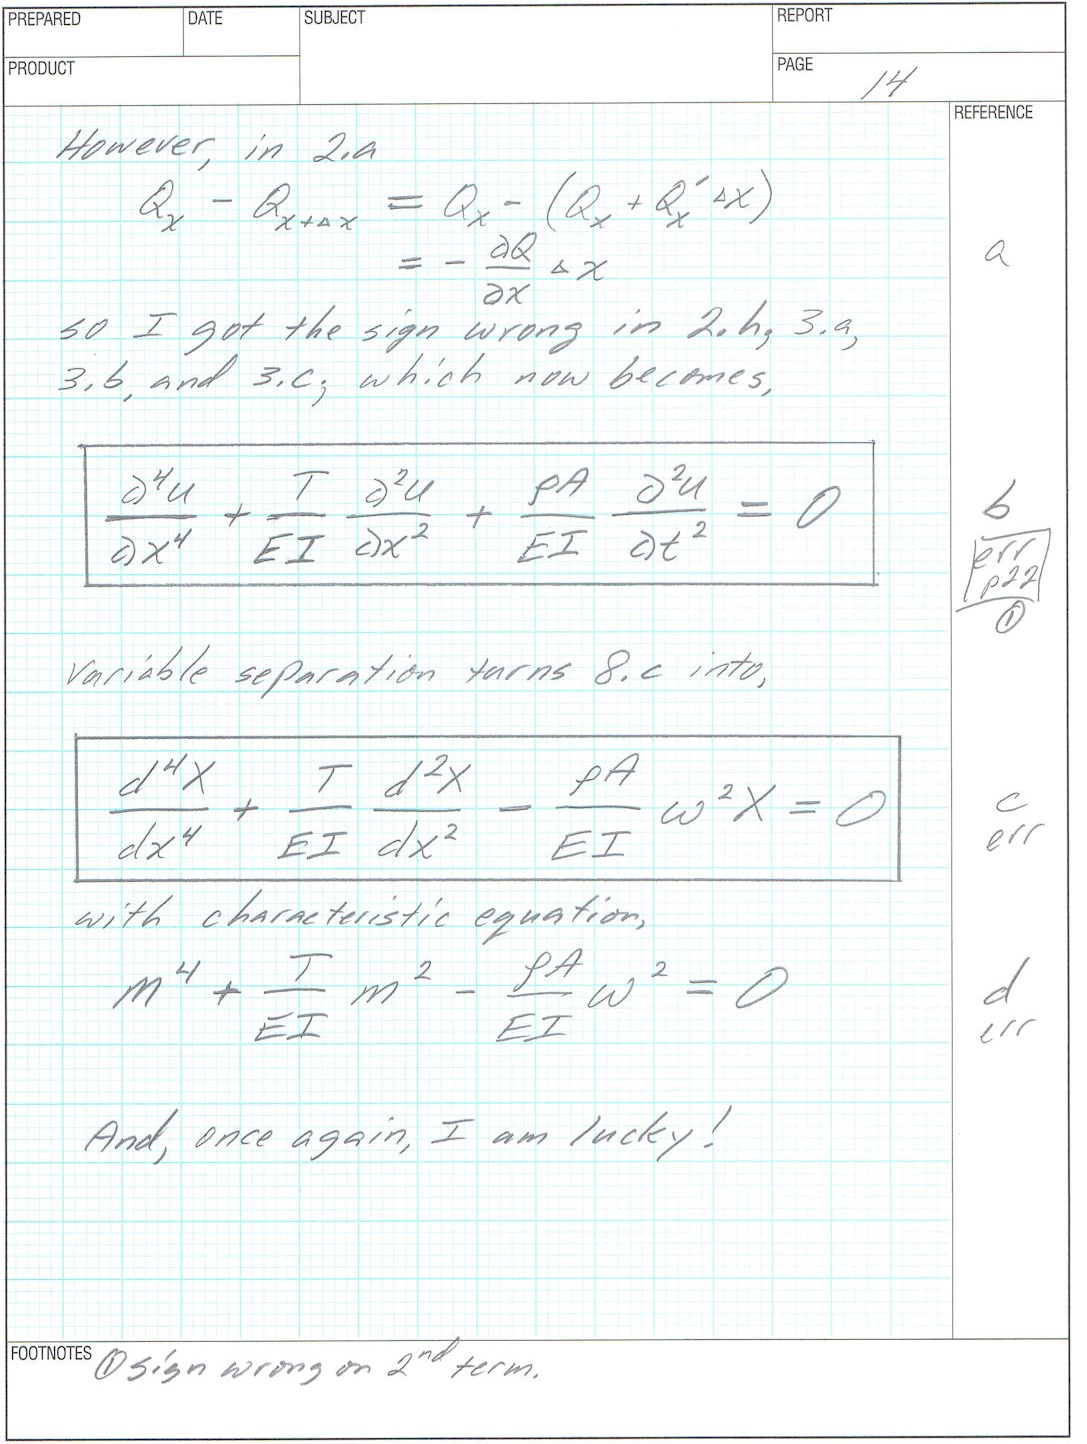 PREPARED
DATE
SUBJECT
REPORT
PRODUCT
PAGE 14
REFERENCE
However, in 2.a
Qₓ - Qₓ₊Δₓ = Qₓ - (Qₓ + Qₓ′ Δx)
= - ∂Q/∂x Δx
a
so I got the sign wrong in 2.h, 3.a,
3.b, and 3.c; which now becomes,
∂⁴u/∂x⁴ + T/EI ∂²u/∂x² + ρA/EI ∂²u/∂t² = 0
b
err
p22
①
Variable separation turns 8.c into,
d⁴X/dx⁴ + T/EI d²X/dx² - ρA/EI ω²X = 0
c
err
with characteristic equation,
m⁴ + T/EI m² - ρA/EI ω² = 0
d
err
And, once again, I am lucky!
FOOTNOTES ① sign wrong on 2nd term.